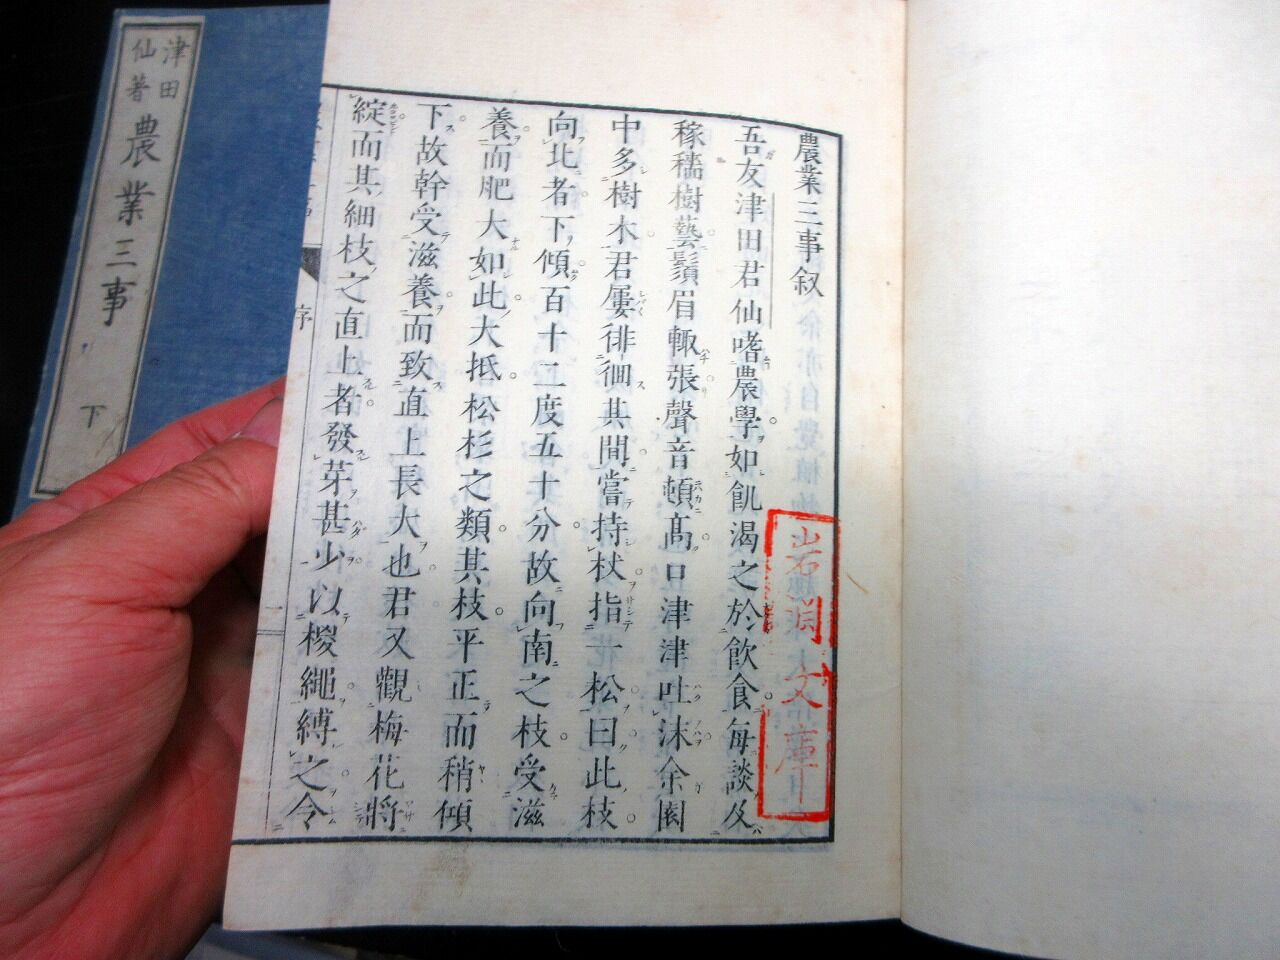 津田
仙著
農業三事
下
農業三事叙
吾友津田君仙嗜農學如飢渴之於飲食每談及
稼穡樹藝鬚眉輙張聲音頓髙口津津吐沫余園
中多樹木君屢徘徊其間嘗持杖指一松曰此枝
向北者下傾百十二度五十分故向南之枝受滋
養而肥大如此大抵松杉之類其枝平正而稍傾
下故幹受滋養而致直上長大也君又觀梅花將
綻而其細枝之直上者發芽甚少以椶繩縛之令
序
一
岩渕文庫